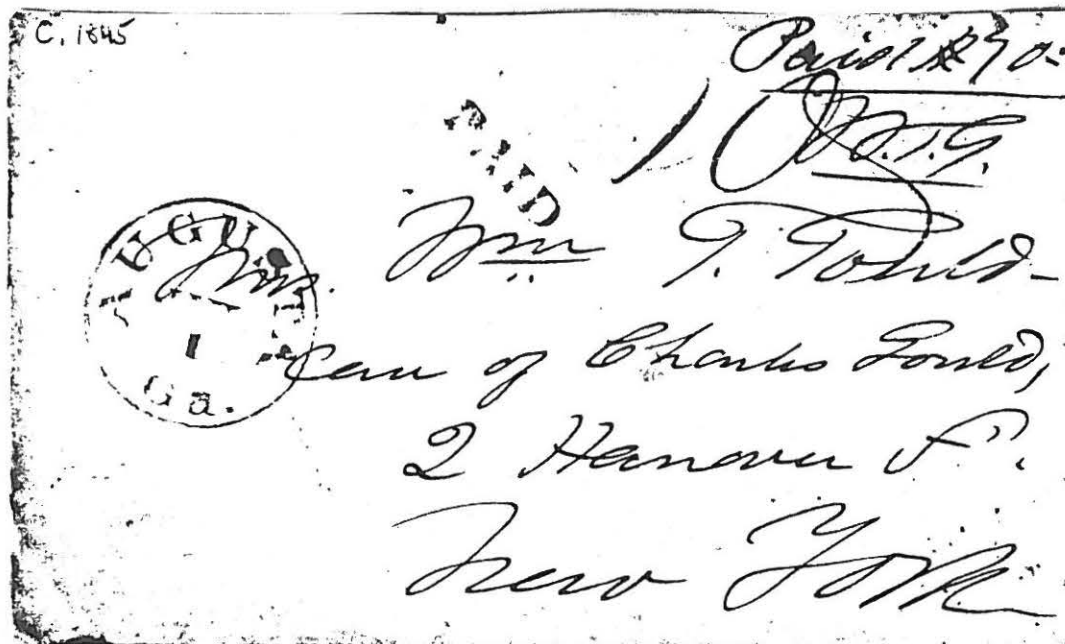 C. 1845
Paid
10
W.T.G.
PAID
AUGUSTA
1
Ga.
Mrs. Wm T. Gould
Care of Charles Gould,
2 Hanover St.
New York